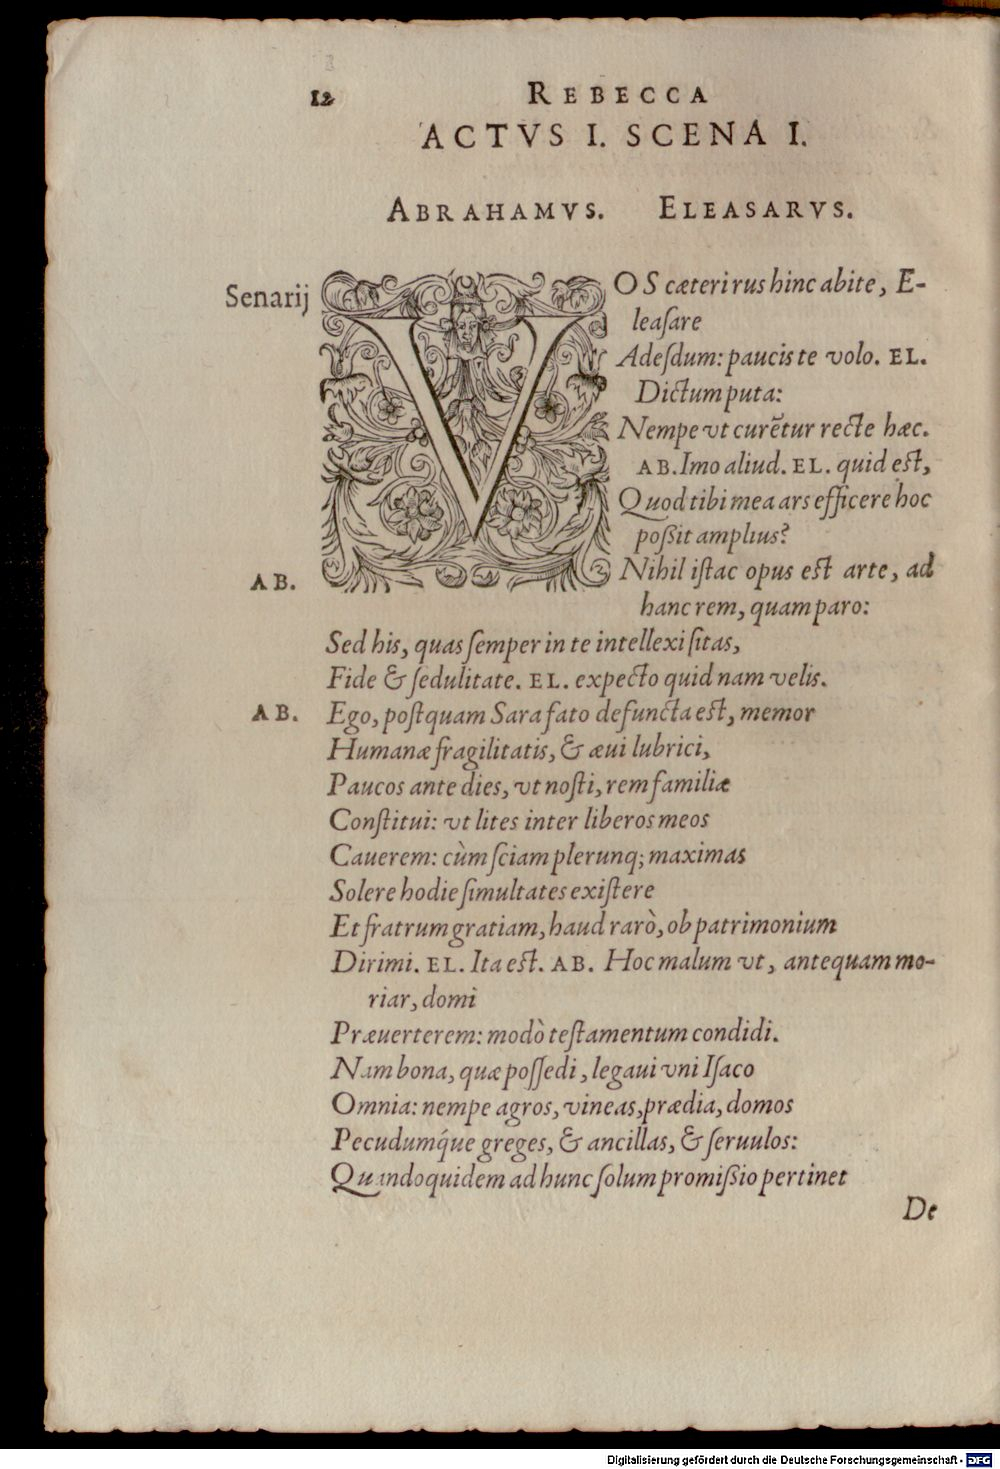 12 REBECCA
ACTVS I. SCENA I.
ABRAHAMVS. ELEASARVS.
Senarij VOS cæteri rus hinc abite, E-
leaſare
Adeſdum: paucis te volo. EL.
Dictum puta:
Nempe vt curẽtur recte hæc.
AB. Imo aliud. EL. quid est,
Quod tibi mea ars efficere hoc
poßit amplius?
AB. Nihil iſtac opus est arte, ad
hanc rem, quam paro:
Sed his, quas ſemper in te intellexi ſitas,
Fide & ſedulitate. EL. expecto quid nam velis.
AB. Ego, poſtquam Sara fato defuncta est, memor
Humanæ fragilitatis, & æui lubrici,
Paucos ante dies, vt noſti, rem familiæ
Conſtitui: vt lites inter liberos meos
Cauerem: cùm ſciam plerunq; maximas
Solere hodie ſimultates exiſtere
Et fratrum gratiam, haud rarò, ob patrimonium
Dirimi. EL. Ita est. AB. Hoc malum vt, antequam mo-
riar, domi
Præuerterem: modò teſtamentum condidi.
Nam bona, quæ poſſedi, legaui vni Iſaco
Omnia: nempe agros, vineas, prædia, domos
Pecudumq́ue greges, & ancillas, & ſeruulos:
Quandoquidem ad hunc ſolum promißio pertinet
De
Digitalisierung gefördert durch die Deutsche Forschungsgemeinschaft - DFG